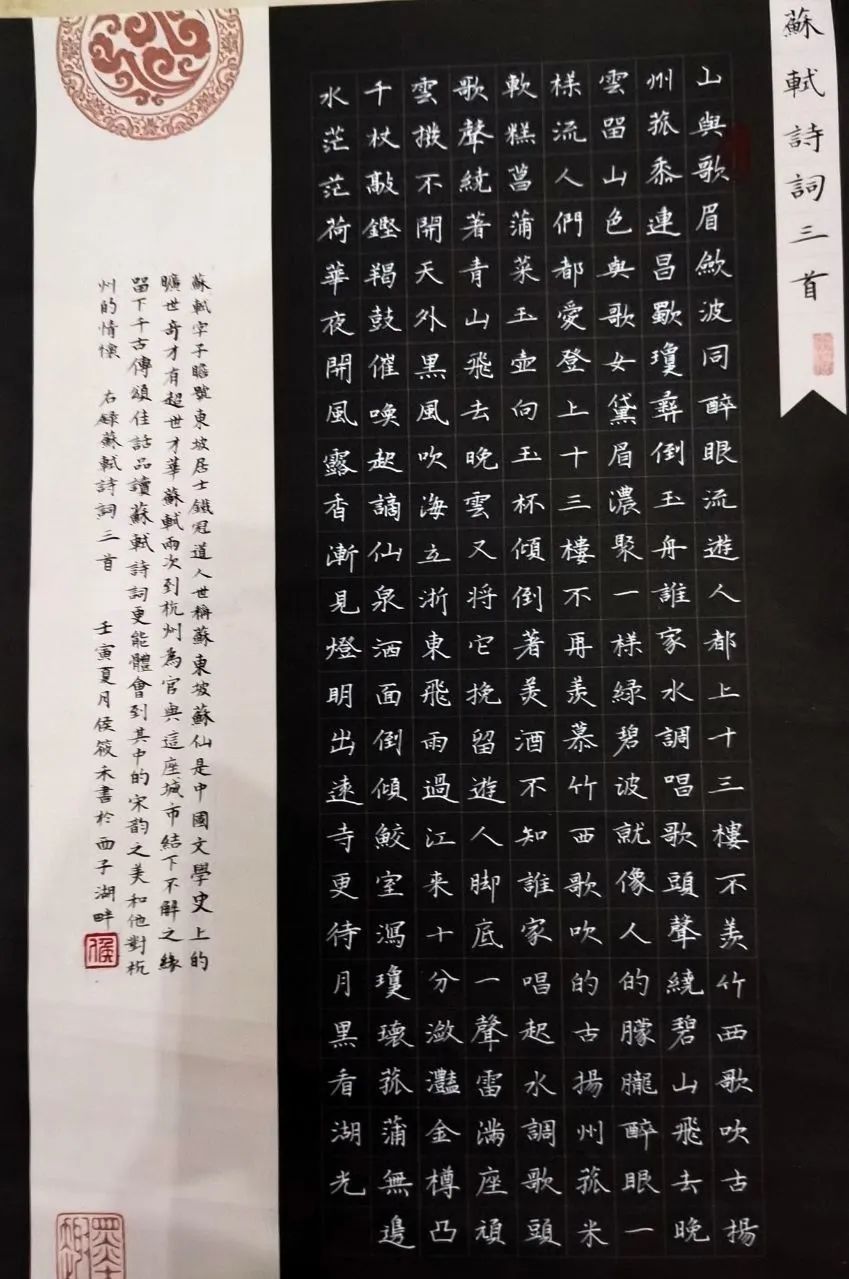 蘇軾詩詞三首
山與歌眉歛波同醉眼流遊人都上十三樓不羨竹西歌吹古揚
州菰黍連昌歜瓊彝倒玉舟誰家水調唱歌頭聲繞碧山飛去晚
雲留山色與歌女黛眉濃聚一樣綠碧波就像人的朦朧醉眼一
樣流人們都愛登上十三樓不再羨慕竹西歌吹的古揚州菰米
軟糕菖蒲菜玉壺向玉杯傾倒著美酒不知誰家唱起水調歌頭
歌聲繞著青山飛去晚雲又將它挽留遊人脚底一聲雷滿座頑
雲撥不開天外黑風吹海立浙東飛雨過江來十分瀲灩金樽凸
千杖敲鏗羯鼓催喚起謫仙泉洒面倒傾鮫室瀉瓊瓌菰蒲無邊
水茫茫荷華夜開風露香漸見燈明出遠寺更待月黑看湖光
蘇軾字子瞻號東坡居士鐵冠道人世稱蘇東坡蘇仙是中國文學史上的
曠世奇才有超世才華蘇軾兩次到杭州為官與這座城市結下不解之緣
留下千古傳頌佳話品讀蘇軾詩詞更能體會到其中的宋韵之美和他對杭
州的情懷 右錄蘇軾詩詞三首 壬寅夏月侯筱禾書於西子湖畔